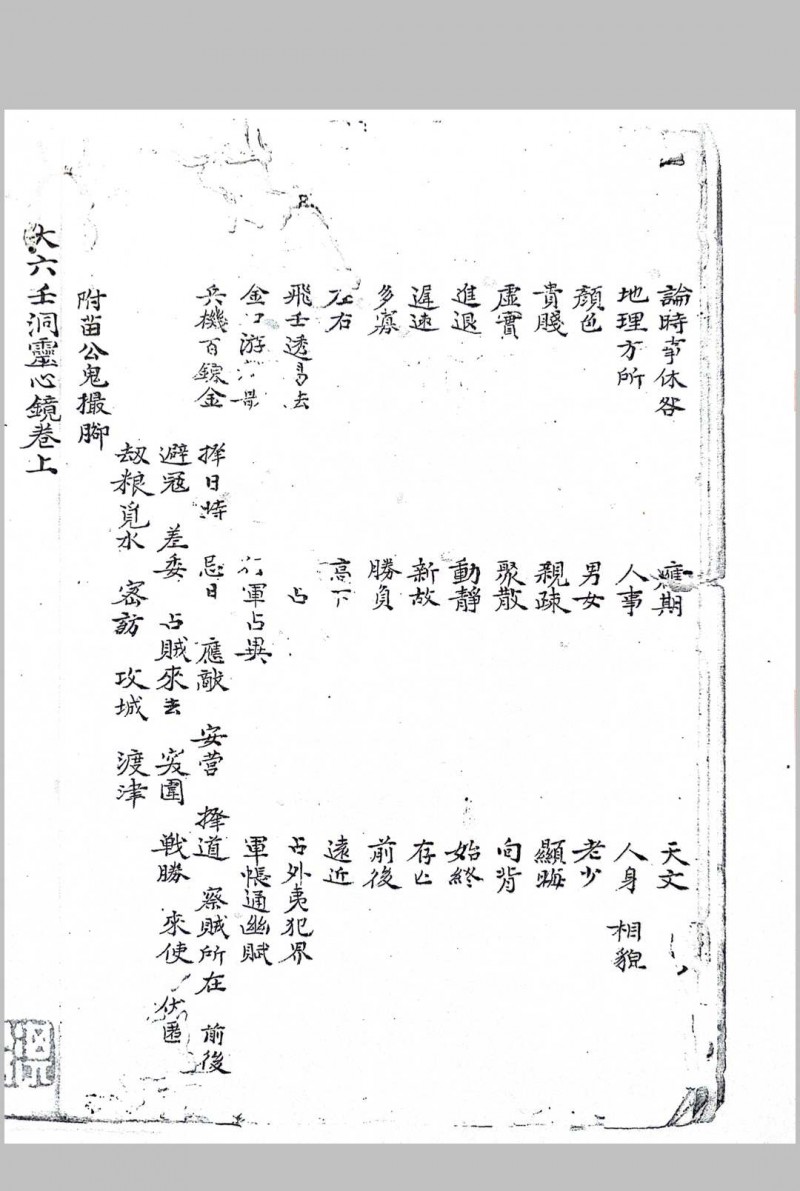 論時事休咎 應期 天文
地理方所 人事 人身 相貌
顏色 男女 老少
貴賤 親疎 顯晦
虛實 聚散 向背
進退 動靜 始終
遲速 新故 存亡
多寡 勝負 前後
左右 高下 遠近
飛壬透易去 占 占外夷犯界
金口游 行軍占異 軍帳通幽賦
兵機百錄金 擇日時 忌日 應敵 安营 擇道 察賊所在 前後
避冦 差委 占賊來去 突圍 戦勝 來使 伏匿
刼粮覓水 密訪 攻城 渡津
附苗公鬼撮脚
大六壬洞靈心鏡卷上